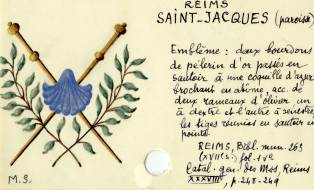 REIMS
SAINT-JACQUES (paroisse)
Emblème : deux bourdons
de pèlerin d'or passés en
sautoir à une coquille d'azur
brochant en abîme, acc. de
deux rameaux d'olivier, un
à dextre et l'autre à senestre
les tiges réunies en sautoir en
pointe.
REIMS, Bibl. mun. 263
(XVIIe s.) fol. 1 vo
Catal. gén. des Mss, Reims
XXXVIII, p. 248-249
M.S.